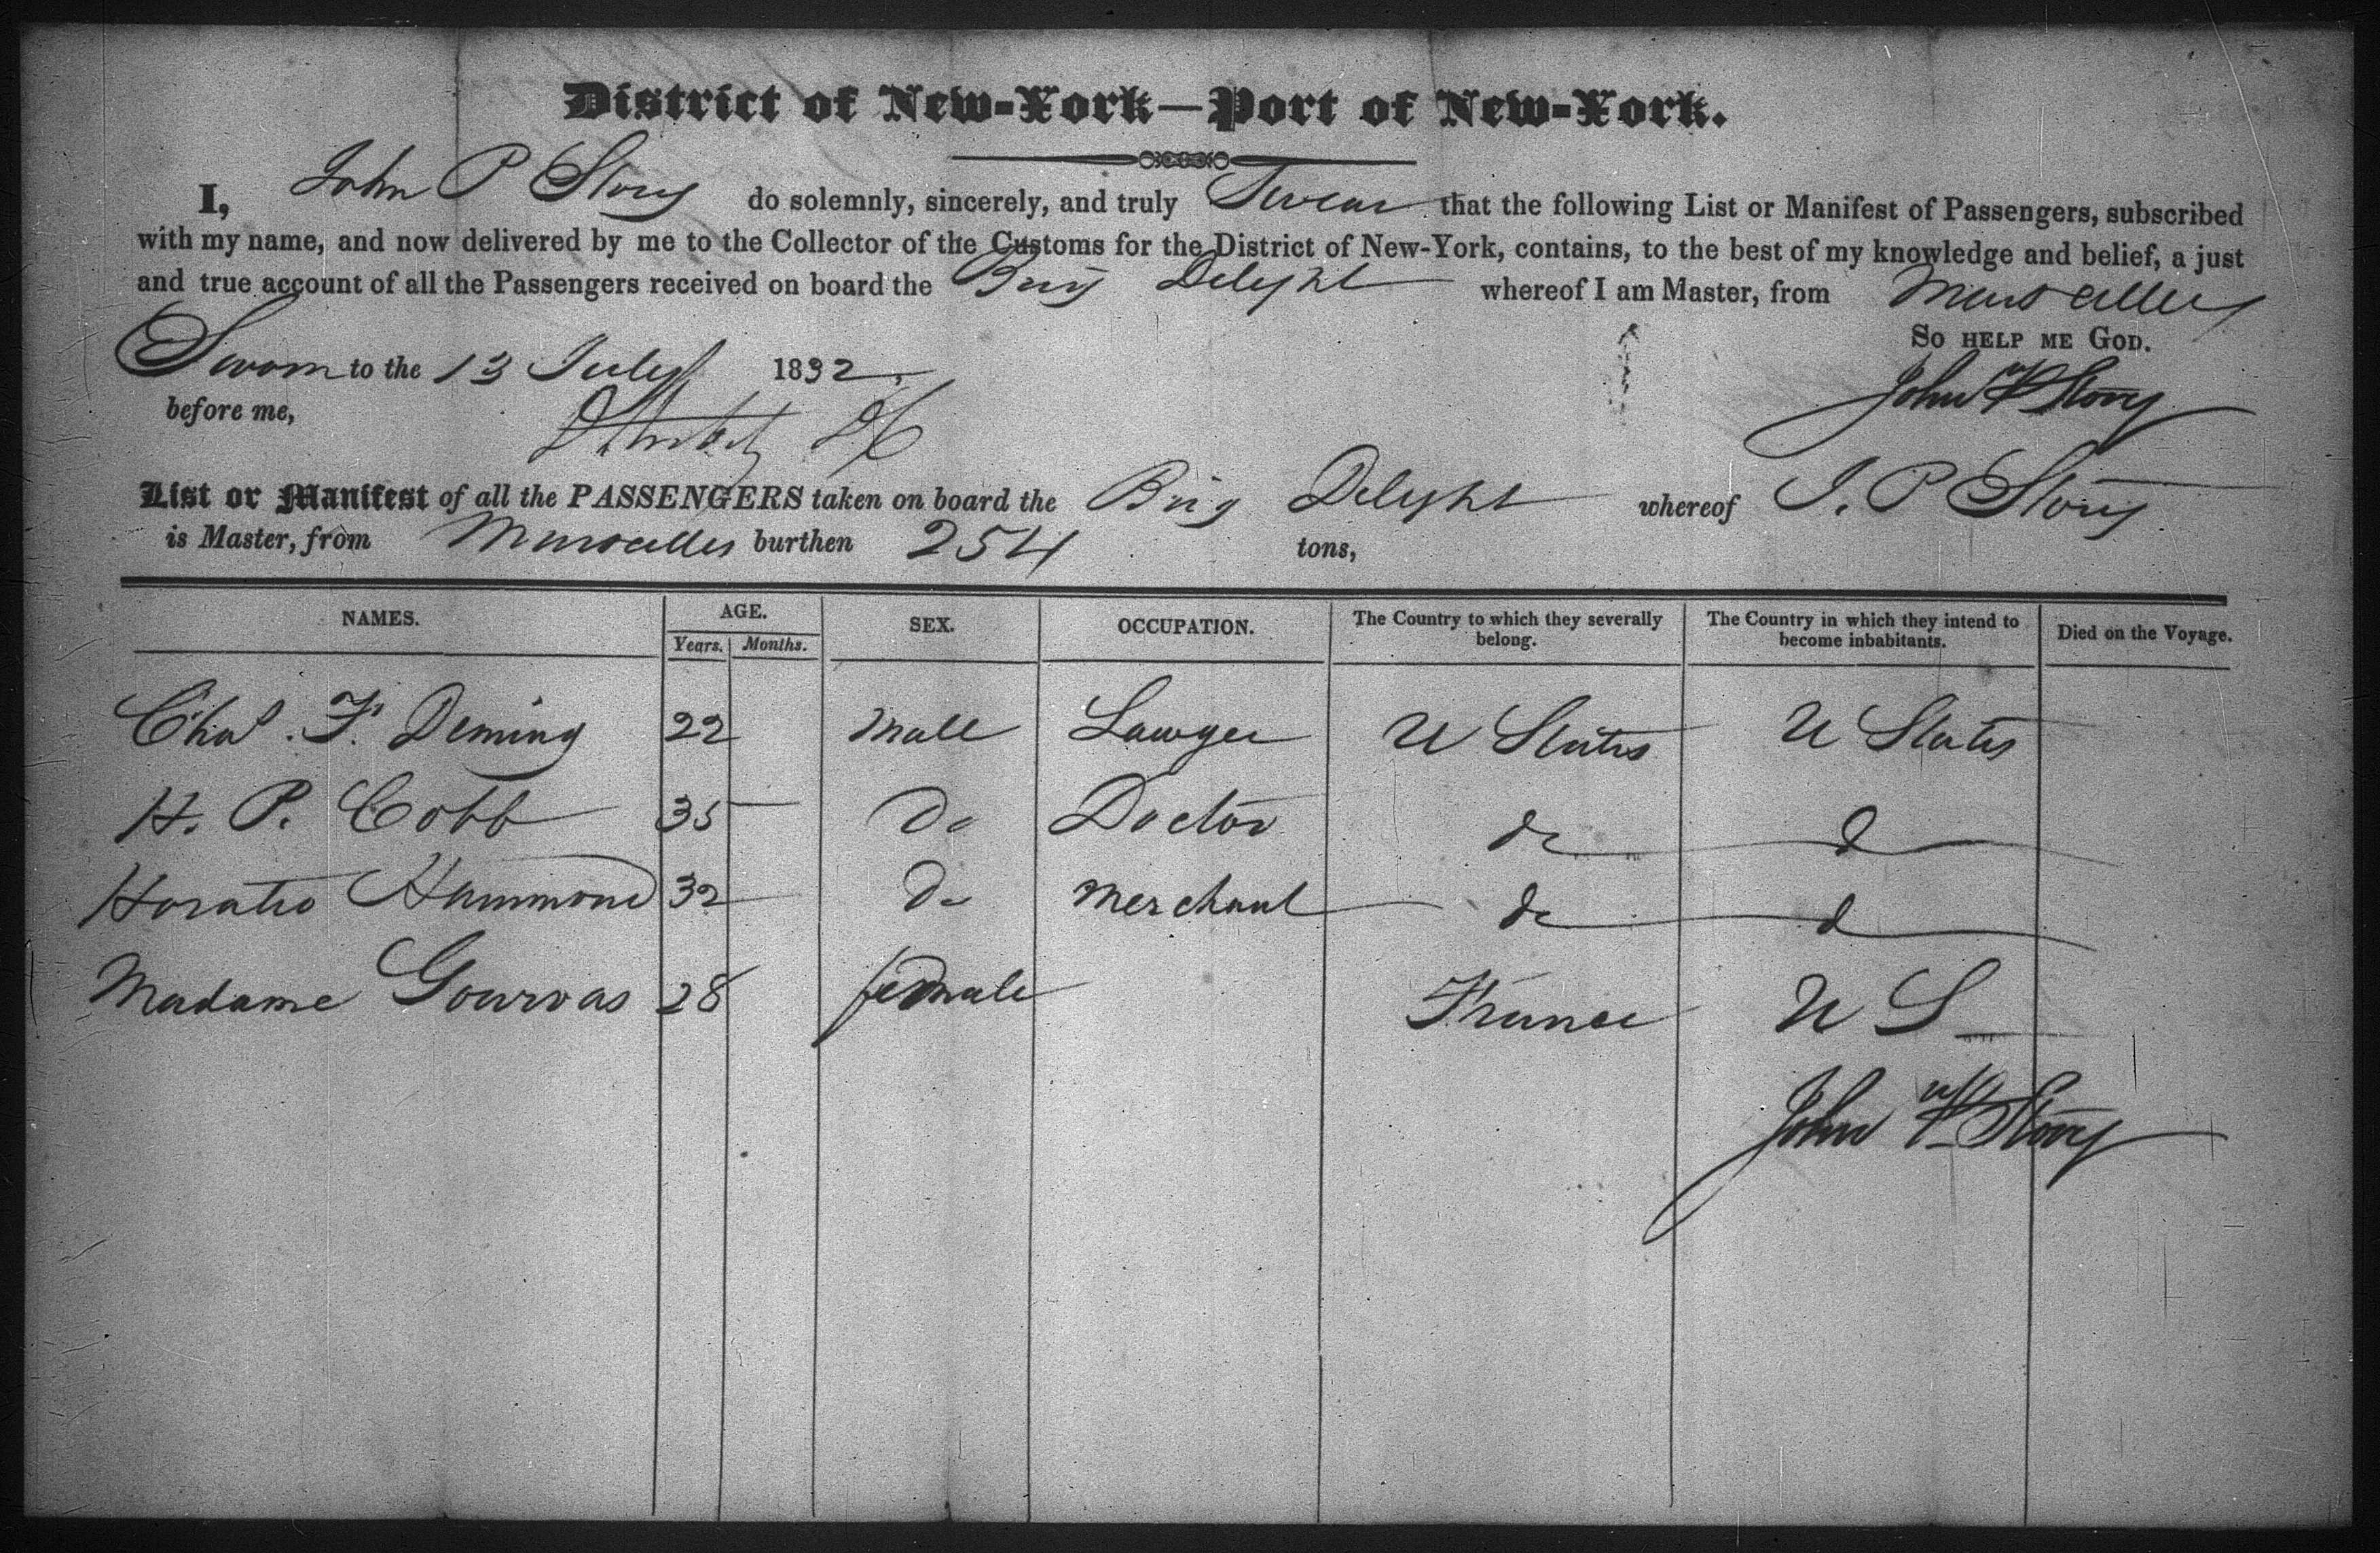 District of New-York—Port of New-York.
I, John P Story do solemnly, sincerely, and truly Swear that the following List or Manifest of Passengers, subscribed
with my name, and now delivered by me to the Collector of the Customs for the District of New-York, contains, to the best of my knowledge and belief, a just
and true account of all the Passengers received on board the Brig Delight whereof I am Master, from Marseilles
So help me God.
Sworn to the 13 July 1832.
before me,
John P Story
List or Manifest of all the PASSENGERS taken on board the Brig Delight whereof J. P Story
is Master, from Marseilles burthen 254 tons,
NAMES. AGE. SEX. OCCUPATION. The Country to which they severally belong. The Country in which they intend to become inhabitants. Died on the Voyage.
Years. Months.
Chas. F. Deming 22 Male Lawyer U States U States
H. P. Cobb 35 Do Doctor do d
Horatio Hammond 32 Do Merchant do d
Madame Gourvas 28 female France U S
John P Story